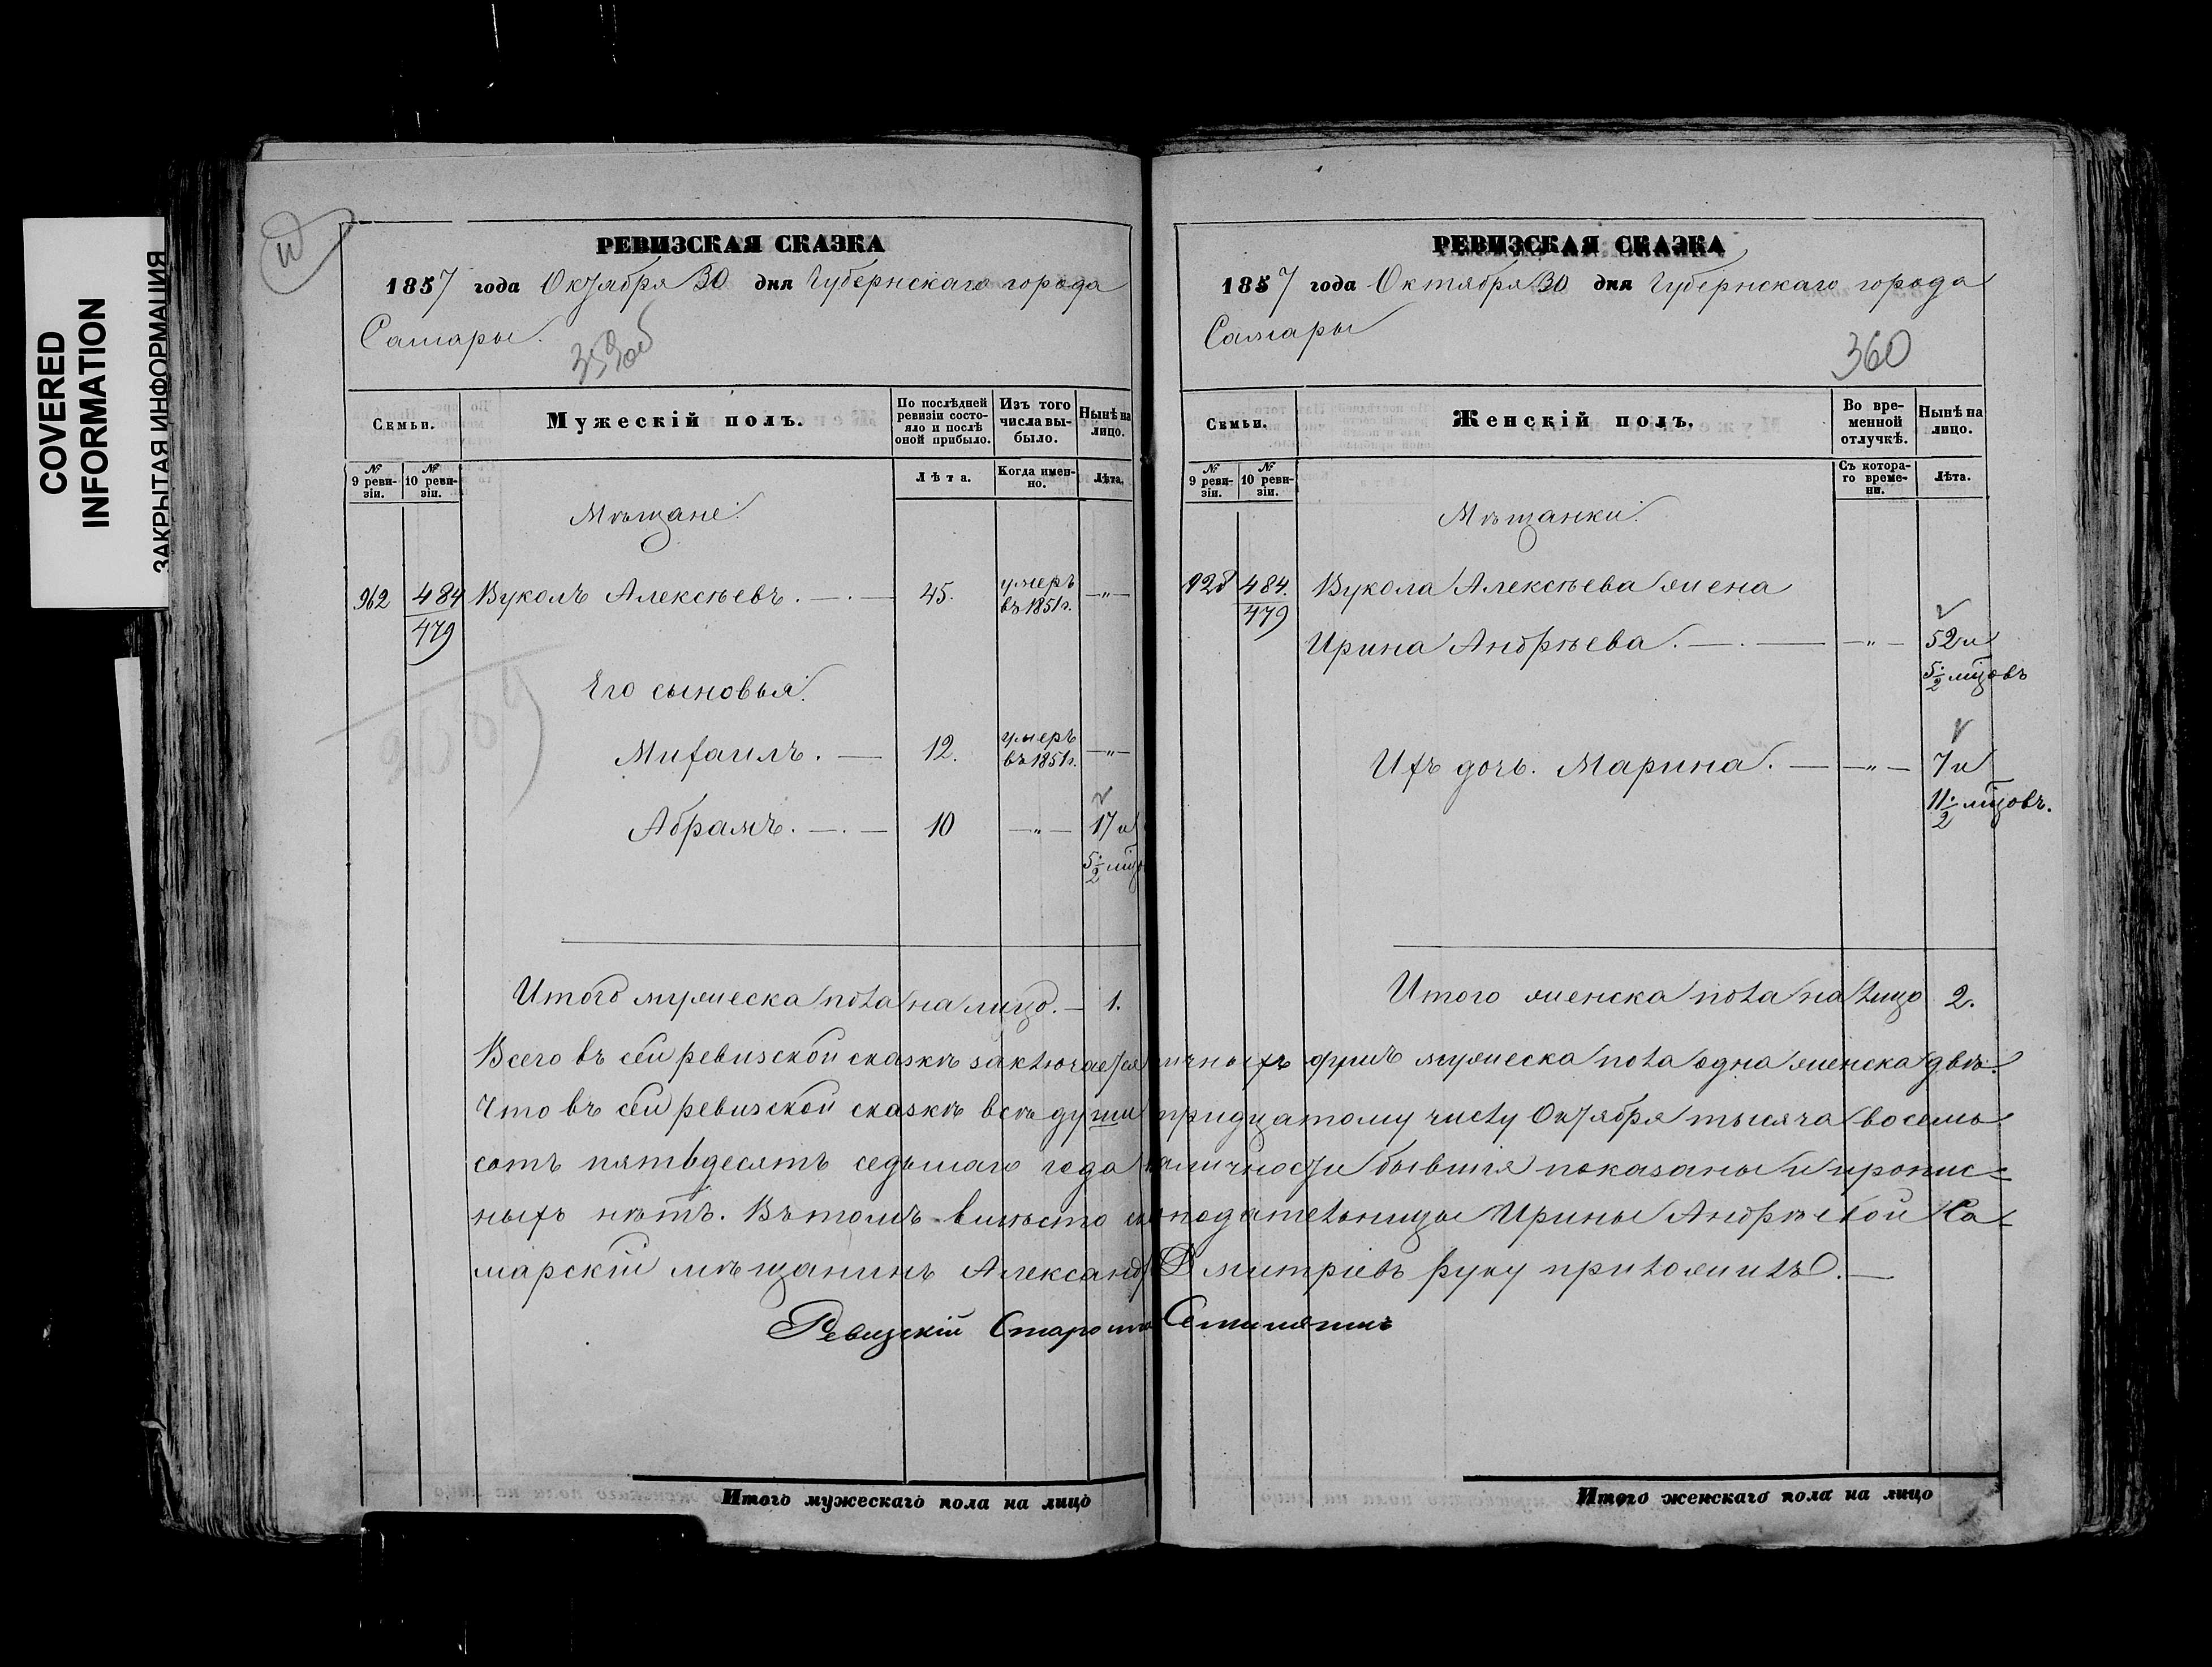 COVERED
INFORMATION
ЗАКРЫТАЯ ИНФОРМАЦИЯ
РЕВИЗСКАЯ СКАЗКА
1857 года Октября 30 дня Губернскаго города
Самары.
359об
Семьи.
Мужескій полъ.
По послѣдней ревизіи состояло и послѣ оной прибыло.
Изъ того числа выбыло.
Нынѣ на лицо.
№ 9 ревизіи.
№ 10 ревизіи.
Лѣта.
Когда именно.
Лѣта.
Мѣщане.
962 484 Вуколъ Алексѣевъ. 45. умеръ въ 1851г. —"—
479
Его сыновья.
Михаилъ. — 12. умеръ въ 1851г. —"—
Абрамъ. — 10 —"— 17 и
5 1/2 мцо
Итого мужеска пола на лицо. — 1.
РЕВИЗСКАЯ СКАЗКА
1857 года Октября 30 дня Губернскаго города
Самары
360
Семьи.
Женскій полъ.
Во временной отлучкѣ.
Нынѣ на лицо.
№ 9 ревизіи.
№ 10 ревизіи.
Съ котораго времени.
Лѣта.
Мѣщанки.
484. Вукола Алексѣева жена
479
Ирина Андрѣева. —"— 52 и
5 1/2 мцовъ
Ихъ дочь. Марина. —"— 7 и
11 1/2 мцовъ.
Итого женска пола на лицо 2.
Всего въ сей ревизской сказкѣ заключается личныхъ душъ мужеска пола одна женска двѣ.
Что въ сей ревизской сказкѣ всѣ души тридцатому числу Октября тысяча восемь
сотъ пятьдесятъ седьмаго года наличности бывшія показаны и пропис=
ныхъ нѣтъ. Въ томъ вмѣсто сказкоподательницы Ирины Андрѣевой Са=
марскій мѣщанинъ Александръ Дмитріевъ руку приложилъ. —
Ревизскій Староста
Итого мужескаго пола на лицо
Итого женскаго пола на лицо